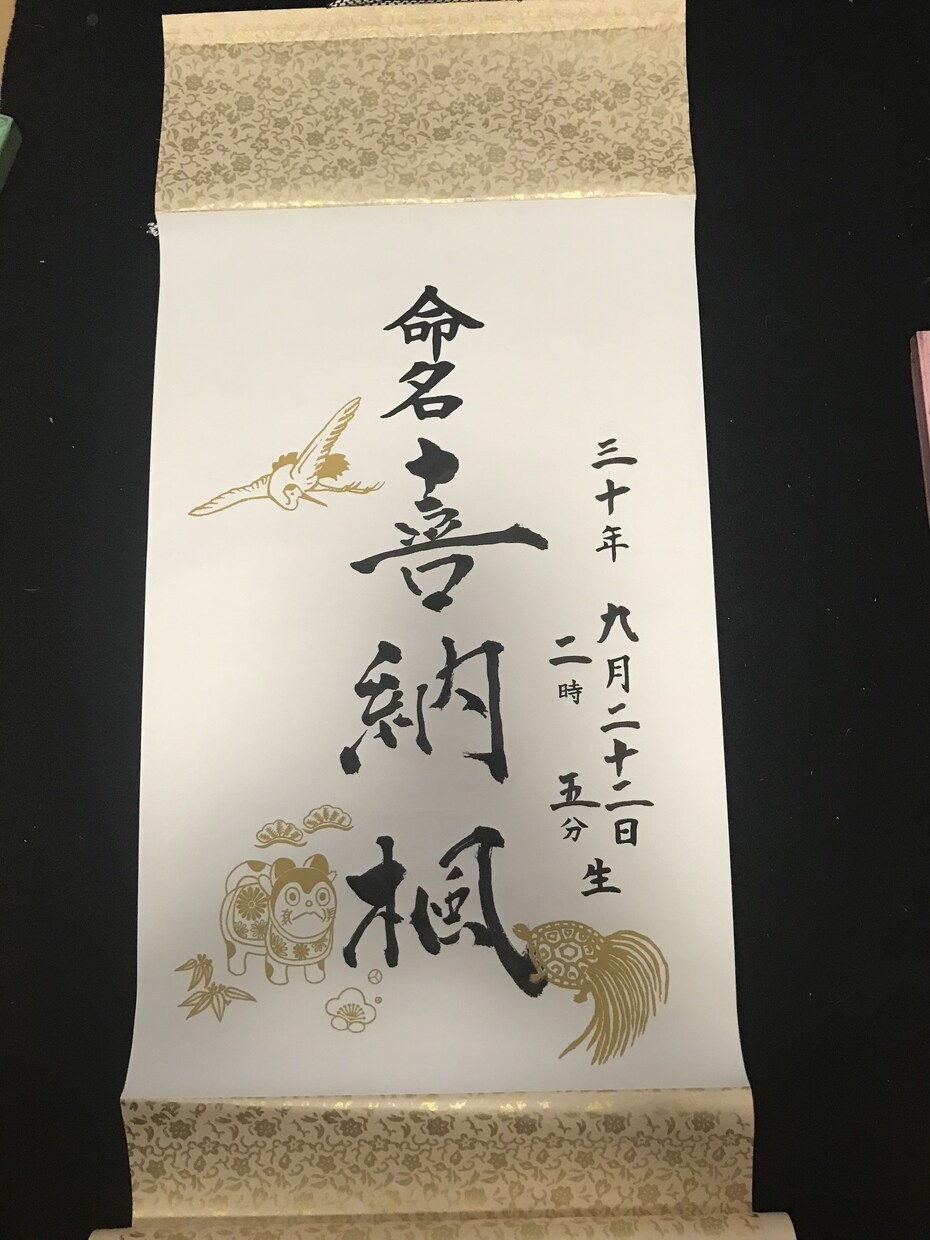 三十年 九月二十二日
二時 五分
生
命名 喜納 楓